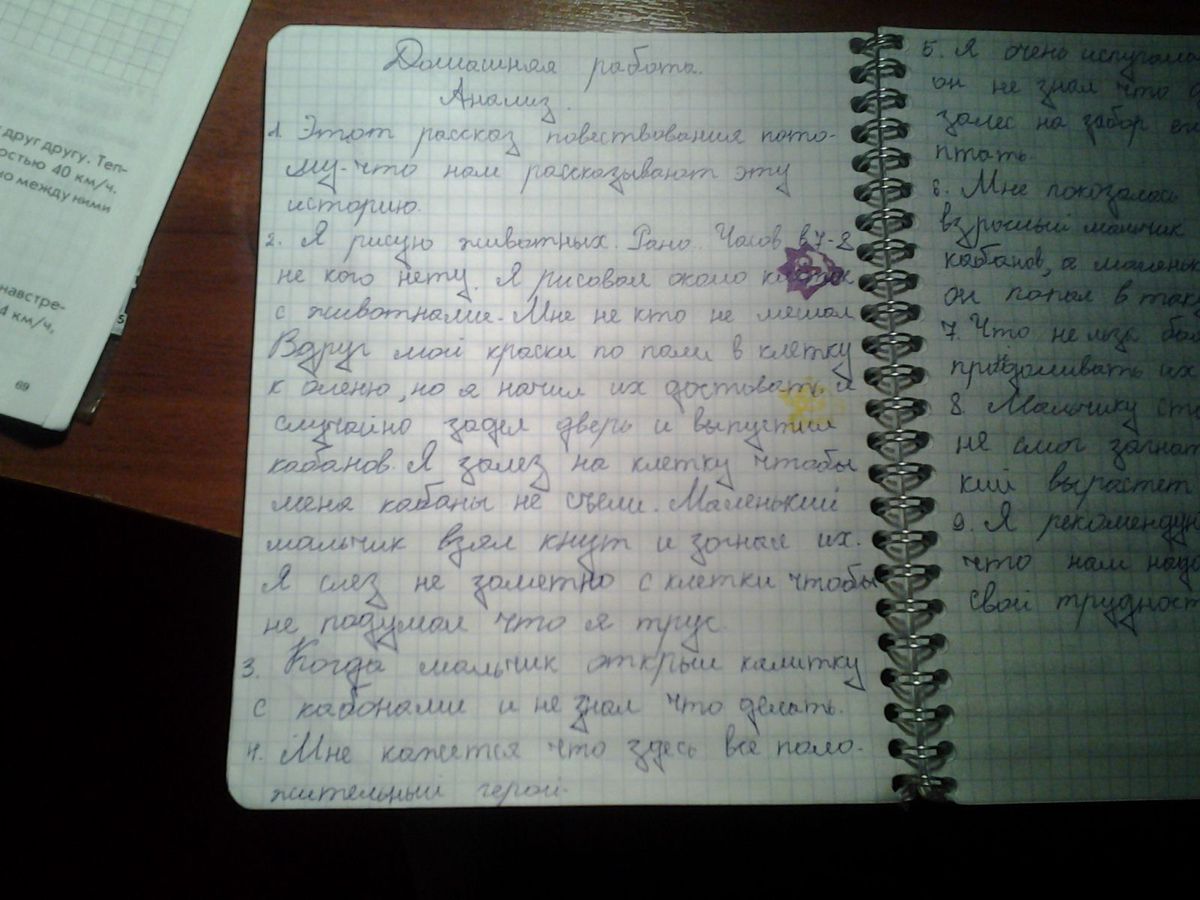 друг другу. Теп-
остью 40 км/ч.
но между ними
навстре-
4 км/ч,
69
Домашная работа.
Анализ.
1. Этот рассказ повествования пото-
му-что нам рассказывают эту
историю.
2. Я рисую животных. Рано. Часов в 7-8
не кого нету. Я рисовал около клеток
с животнами. Мне не кто не мешал
Вдруг мои краски по пали в клетку
к оленю, но я начил их доставать и
случайно задел дверь и выпустил
кабанов. Я залез на клетку чтобы
меня кабаны не съели. Маленький
мальчик взял кнут и загнал их.
Я слез не заметно с клетки чтобы
не подумал что я трус.
3. Когда мальчик открыл калитку
с кабонами и не знал что делать.
4. Мне кажется что здесь все поло-
жительный герой.
5. Я очень испугала
он не знал что
залес на забор
птать
6. Мне показалась
взрослый мальчик
кабанов, а маленьк
он попал в так
7. Что не льзя бо
придаливать их
8. Мальчику ст
не смог загнат
кий вырастет
9. Я рекоменду
что нам надо
свой трудност